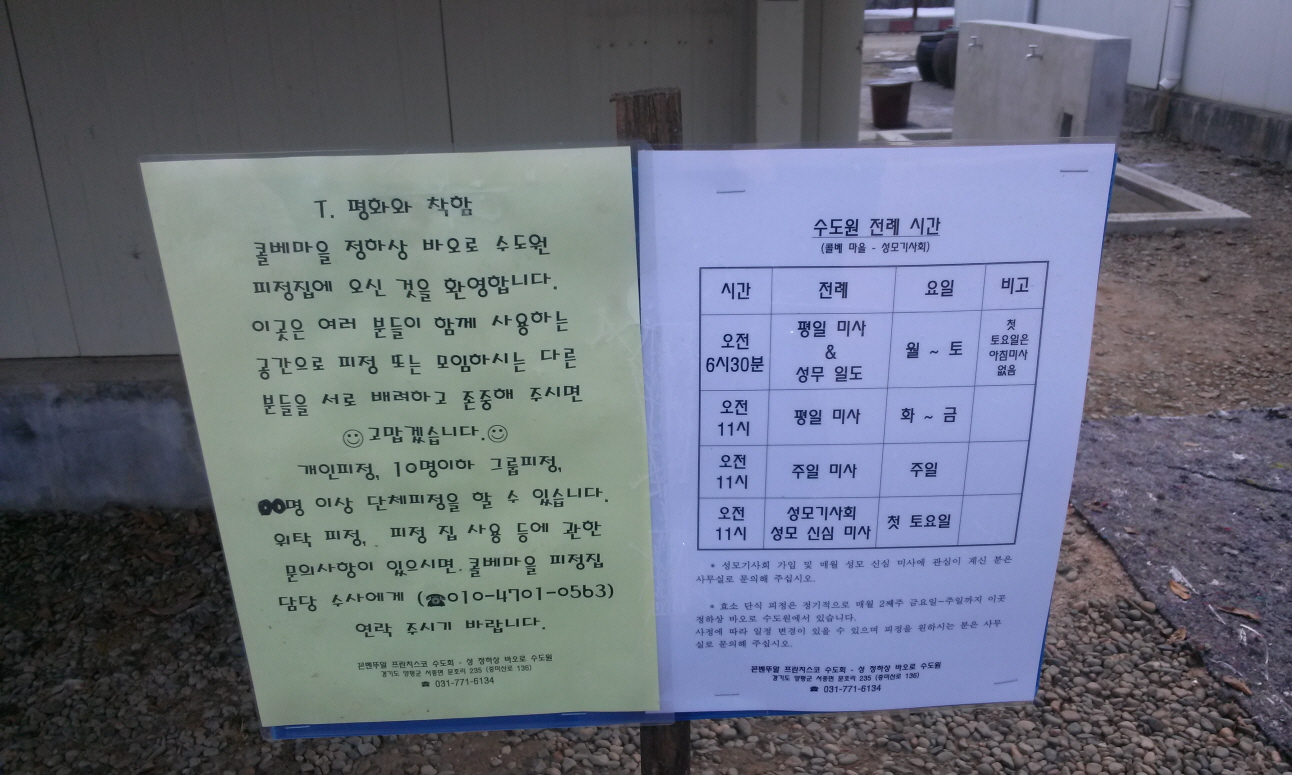 T. 평화와 착함
콜베마을 정하상 바오로 수도원
피정집에 오신 것을 환영합니다.
이곳은 여러 분들이 함께 사용하는
공간으로 피정 또는 모임하시는 다른
분들을 서로 배려하고 존중해 주시면
☺고맙겠습니다.☺
개인피정, 10명이하 그룹피정,
명 이상 단체피정을 할 수 있습니다.
위탁 피정, 피정 집 사용 등에 관한
문의사항이 있으시면 콜베마을 피정집
담당 수사에게 (☎010-4701-0563)
연락 주시기 바랍니다.
꼰벤뚜알 프란치스코 수도회 - 성 정하상 바오로 수도원
경기도 양평군 서종면 문호리 235 (중미산로 136)
☎ 031-771-6134
수도원 전례 시간
(콜베 마을 - 성모기사회)
시간 전례 요일 비고
오전 6시30분 평일 미사 & 성무 일도 월 ~ 토 첫 토요일은 아침미사 없음
오전 11시 평일 미사 화 ~ 금
오전 11시 주일 미사 주일
오전 11시 성모기사회 성모 신심 미사 첫 토요일
* 성모기사회 가입 및 매월 성모 신심 미사에 관심이 계신 분은
사무실로 문의해 주십시오.
* 효소 단식 피정은 정기적으로 매월 2째주 금요일-주일까지 이곳
정하상 바오로 수도원에서 있습니다.
사정에 따라 일정 변경이 있을 수 있으며 피정을 원하시는 분은 사무
실로 문의해 주십시오.
꼰벤뚜알 프란치스코 수도회 - 성 정하상 바오로 수도원
경기도 양평군 서종면 문호리 235 (중미산로 136)
☎ 031-771-6134